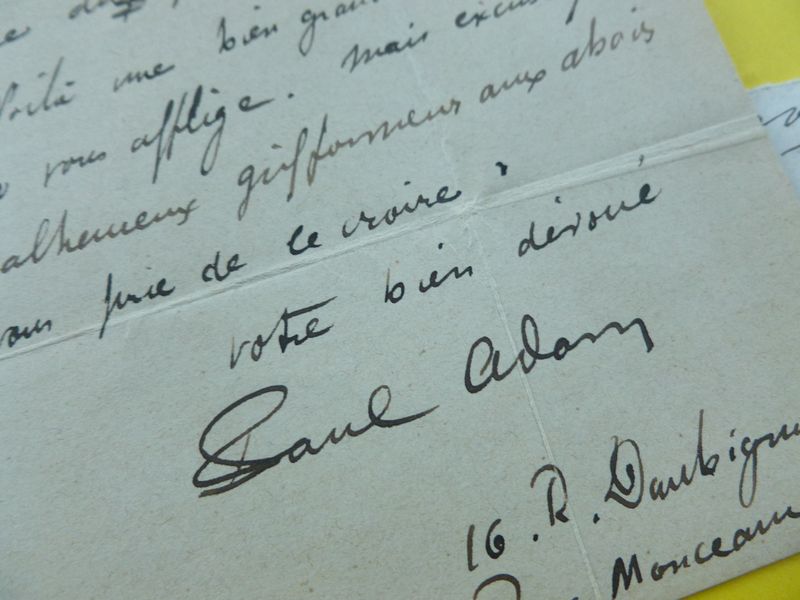 voilà une bien gran
vous afflige. mais excus
alheureux griffonneur aux abois
vous prie de le croire,
votre bien dévoué
Paul Adam
16. R. Daubign
Monceau